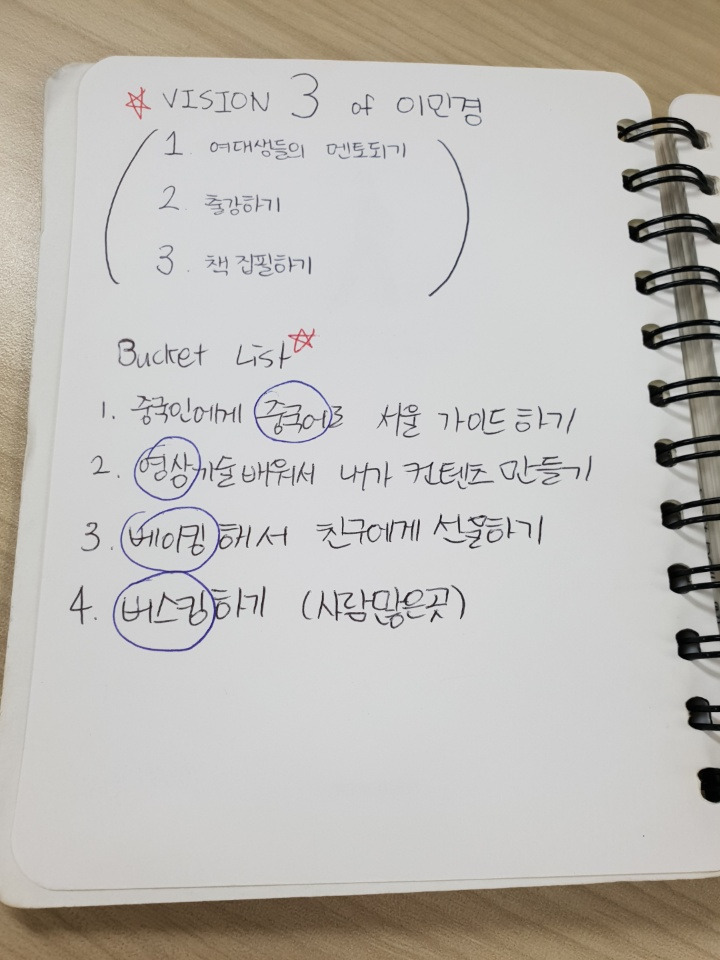 ☆ VISION 3 of 이민경
1 여대생들의 멘토되기
2. 출강하기
3. 책 집필하기
Bucket List ☆
1. 중국인에게 중국어로 서울 가이드하기
2. 영상기술배워서 내가 컨텐츠 만들기
3. 베이킹해서 친구에게 선물하기
4. 버스킹하기 (사람많은곳)